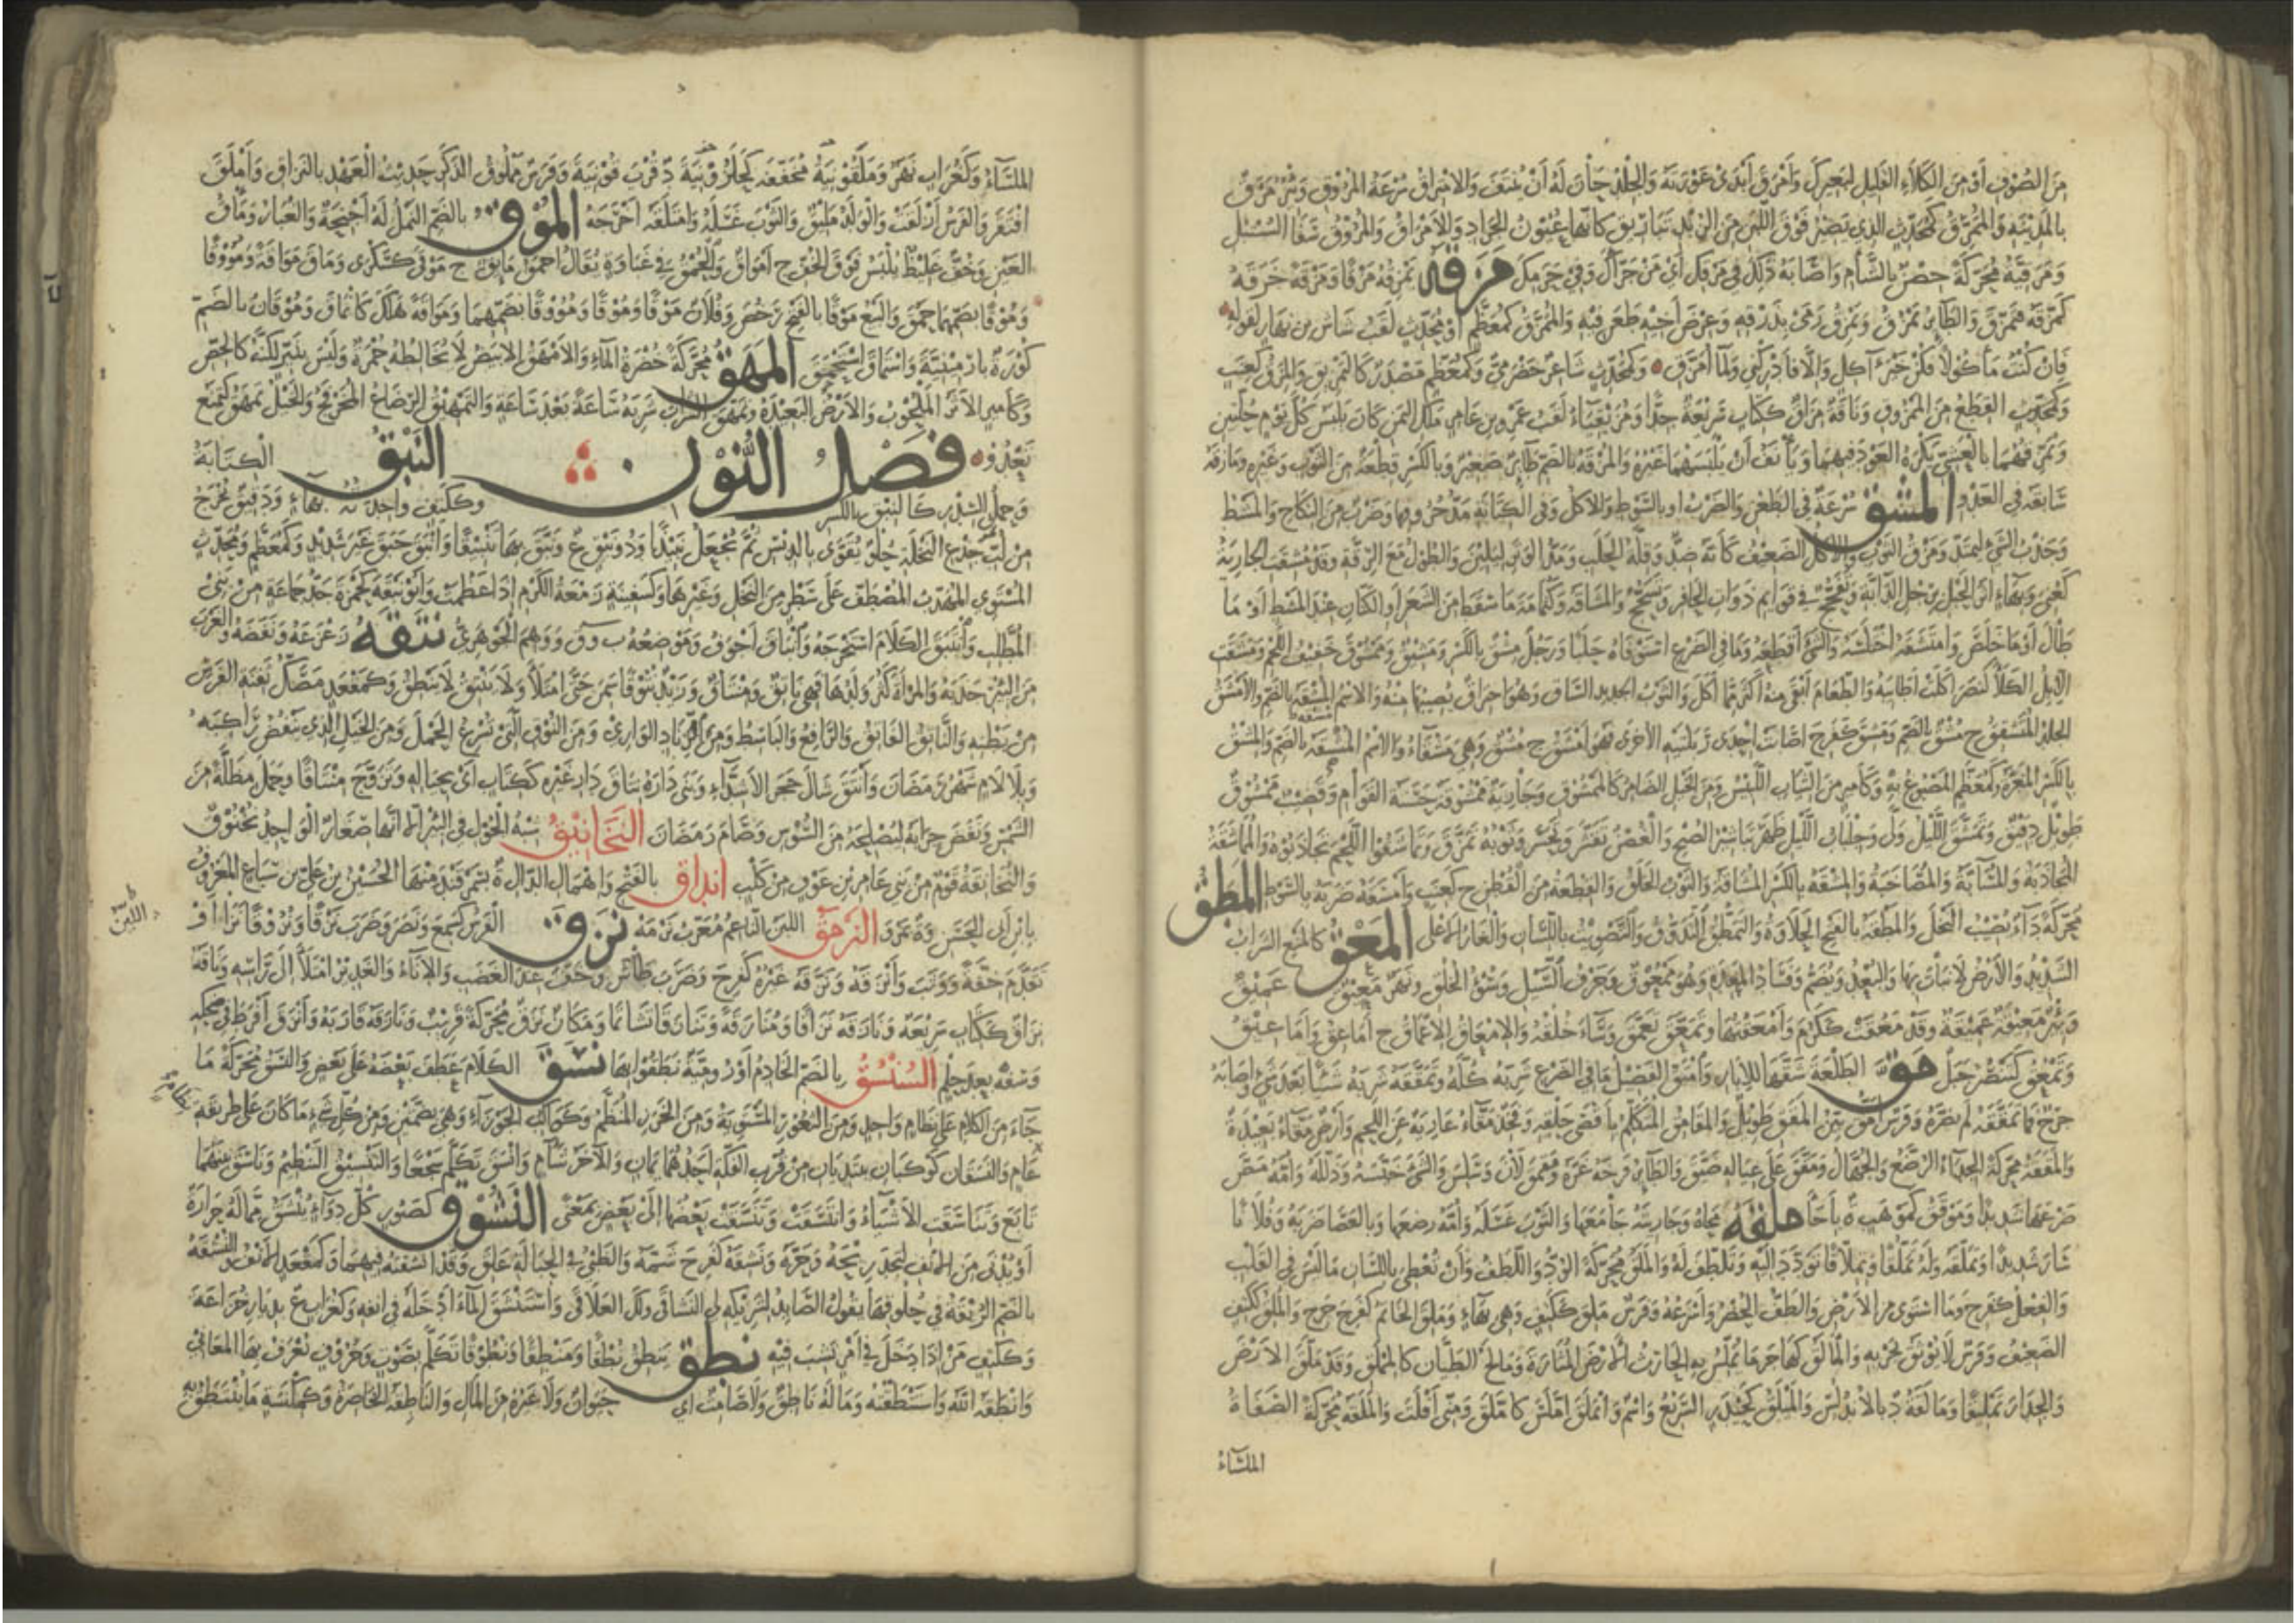 من الصوف أو من الكلاء القليل لبعيرك وأمرق أبدى عورته والجلد حان له أن ينتف والامتراق سرعة المروق وبئر مرق
بالمدينة والممرق كمحدث الذي يصير فوق اللبن من الزبد تباريق كأنها عيون الجراد والامراق والمروق سفا السنبل
ومرقية محركة حصن بالشام وأصابه ذلك في مرقك أي من جراك وفي جرمك مزقه يمزقه مزقا ومزقة خرقه
كمزقه فتمزق والطائر يمزق ويمزق رمى بذرقه وعرض أخيه طعن فيه والممزق كمعظم أو محدث لقب شاس بن نهار لقوله
فان كنت مأكولا فكن خير آكل والا فأدركني ولما أمزق وكمحدث شاعر حضرمي وكمعظم مصدر كالتمزيق والمزق كعنب
القطع من الممزوق وناقة مزاق ككتاب سريعة جدا ومزيقياء لقب عمرو بن عامر ملك اليمن كان يلبس كل يوم حلتين
ويمزقهما بالعشي يكره العود فيهما ويأنف أن يلبسهما غيره والمزقة بالضم طائر صغير وبالكسر قطعة من الثوب وغيره ومازقه
سابقه في العدو المشق سرعة في الطعن والضرب أو بالسوط والاكل وفي الكتابة مد حروفها وضرب من النكاح والمشط
وجذب الشيء ليمتد ومزق الثوب والاكل الضعيف كأنه ضد وقلة الحلب ومد الوتر ليلين والطول مع الرقة وقد مشقت الجارية
كعني
طال أو ما خلص وامتشقه اختلسه والشيء اقتطعه وما في الضرع استوفاه حلبا ورجل مشق بالكسر ومشيق وممشوق خفيف اللحم ومشقت
الابل الكلأ كنصر أكلت أطايبه والطعام أبقى منه أكثر مما أكل والثوب الجديد الساق وهو احراق يصيبها منه والاسم المشقة بالضم والامشق
الجلد المتشقق ج مشق بالضم ومشق كفرح اصابت احدى ربلتيه الاخرى فهو أمشق ج مشق وهي مشقاء والاسم المشقة بالضم والمشق
بالكسر المغرة وكمعظم المصبوغ به وكأمير من الثياب اللبيس ومن الخيل الضامر كالممشوق وجارية ممشوقة حسنة القوام وقضيب ممشوق
طويل دقيق وتمشق الليل ولى وجلباب الليل ظهر تباشير الصبح والغصن تقشر وتحسر وثوبه تمزق وتماشقوا اللحم تجاذبوه والمماشقة
المجاذبة والمسابة والمصاخبة والمشقة بالكسر المشاقة والثوب الخلق والقطعة من القطن ج كعنب وأمشقه ضربه بالسوط المطق
محركة داء يصيب النخل والمطقة بالفتح الحلاوة والتمطق التذوق والتصويت باللسان والغار الاعلى المعق كالمنع الشراب
الشديد والارض لا نبات بها والبعد ويضم وفساد المعدة وهو ممعوق وجرف السيل وسوء الخلق ونهر معيق عميق
وبئر معيقة عميقة وقد معقت ككرم وأمعقتها وتمعق تعمق وساء خلقه والامعاق الاعماق ج أماعق وأماعيق
وتمعق كتنصر جبل مق الطلعة شقها للابار وامتق الفصيل ما في الضرع شربه كله وتمققه شربه شيئا بعد شيء وأصابه
جرح فما تمققه لم يضره وفرس أمق بين المقق طويل والمقامق المتكلم بأقصى حلقه وفخذ مقاء عارية عن اللحم وأرض مقاء بعيدة
والمققة محركة الجداء الرضع والجهال ومقق على عياله ضيق والطائر فرخه غره
ضرعها شديدا وموقق كموهب ة بأجأ ملقه محاه وجاريته جامعها والثوب غسله وأمه رضعها وبالعصا ضربه وفلانا
سار شديدا وتملقه وله تملقا وتملاقا تودد إليه وتلطف له والملق محركة الود واللطف وأن تعطي باللسان ما ليس في القلب
والفعل كفرح وما استوى من الارض وألطف الحضر وأسرعه وفرس ملق ككتف وهي بهاء وملق الخاتم كفرح خرج والملق ككتف
الضعيف وفرس لا يوثق بجريه والمالق كهاجر ما يملس به الحارث الارض المثارة ومالج الطيان كالمملق وقد ملق الارض
والجدار تمليقا ومالقة د بالاندلس والملق كحيدر السريع واسم وانملق املس كاملق ومني أفلت والملقة محركة الصفاة
الملساء
الملساء وكغراب نهر وملقونية مخففة كحلزونية د قرب قونية وفرس مملوق الذكر حديث العهد بالنزاق وأملق
افتقر والفرس أزلقت والولد مليق والثوب غسله وامتلقه أخرجه الموق بالضم النمل له أجنحة والغبار ومأق
العين وخف غليظ يلبس فوق الخف ج أمواق والحمق في غباوة يقال أحمق مايق ج موقى كسكرى وماق مواقة ومؤوقا
وموقا بضمهما حمق والبيع موقا بالفتح رخص وفلان موقا وموقا ومؤوقا بضمهما ومواقة هلك كانماق وموقان بالضم
كورة بارمينية واستماق استحمق المهق محركة خضرة الماء والامهق الابيض لا تخالطه حمرة وليس بنير لكنه كالجص
وكأمير الاثر الملحوب والارض البعيدة وتمهق الشراب شربه ساعة بعد ساعة والتمهيق الرضاع المخرفج والخيل تمهق كتمنع
تعدو فصل النون النبق الكتابة
وحمل السدر كالنبق بالكسر وككتف واحدته بهاء ودقيق يخرج
من لب جذع النخلة حلو يقوى بالدبس ثم يجعل نبيذا وذو نبق ع ونبق بها تنبيقا وأنبق حبق غير شديد وكمعظم ومحدث
المستوي المهذب المصطف على سطر من النخل وغيرها وكسفينة زمعة الكرم إذا عظمت وأبو نبقة كحمزة جد جماعة من بني
المطلب وانتبق الكلام استخرجه وانباق أجوف وموضعه ب و ق ووهم الجوهري نتقه زعزعه ونفضه والغرب
من البئر جذبه والمرأة كثر ولدها فهي ناتق ومنتاق وزيد نتوقا سمن حتى امتلأ ولا ينتق لا ينطق وكمقعد
من بطنه والناتق الفاتق والرافع والباسط ومن الزناد الواري ومن النوق التي تسرع الحمل ومن الخيل الذي ينفض راكبه
وبلا لام شهر رمضان وأنتق شال حجر الاشداء وبنى داره نتاق دار غيره ككتاب أي بحياله وتزوج منتاقا وحمل مظلة من
الشمس ونفض جرابه ليصلحه من السوس وصام رمضان النخانيق شبه الحول في البئر الا أنها صغار الواحد نخنوق
والنخانقة قوم من بني عامر بن عوف من كلب انداق بالفتح وإهمال الدال ة بسمرقند منها الحسن بن علي بن سباع المعروف
بابن أبي الحسن وة بمرو النرمق اللين الناعم معرب نرمه نزق الفرس كسمع ونصر وضرب نزقا ونزوقا نزا أو
تقدم خفة ووثب وأنزقه ونزقه غيره كفرح وضرب طاش وخف عند الغضب والاناء والغدير امتلأ إلى رأسه وناقة
نزاق ككتاب سريعة ونازقه نزاقا ومنازقة وتنازقا تشاتما ومكان نزق محركة قريب ونازقه قاربه وأنزق أفرط في ضحكه
وسفه بعد حلم السنسق بالضم الخادم أو رومية نطقوا بها نسق الكلام عطف بعضه على بعض والنسق محركة ما
جاء من الكلام على نظام واحد ومن الثغور المستوية ومن الخرز المنظم وكواكب الجوزاء وهي بضمتين ومن كل شيء ما كان على طريقة
عام والنسقان كوكبان يبتديان من قرب الفكة أحدهما يمان والآخر شآم وأنسق تكلم سجعا والتنسيق التنظيم وناسق بينهما
تابع وتناسقت الاشياء وانتسقت وتنسقت بعضها إلى بعض بمعنى النشوق كصبور كل دواء ينشق مما له حرارة
أو يدنى من الانف لتجد ريحه وحره ونشقه كفرح شمه والظبي في الحبالة علق وقد أنشقته فيهما وكمقعد الانف والنشقة
بالضم الربقة في حلوقها يقول الصائد لشريكه لي النشاقى ولك العلاقى واستنشق الماء أدخله في أنفه وكغراب ع بديار خزاعة
وككتف من إذا دخل في أمر نشب فيه نطق ينطق نطقا ومنطقا ونطوقا تكلم بصوت وحروف تعرف بها المعاني
وأنطقه الله واستنطقه وماله ناطق ولا صامت أي حيوان ولا غيره من المال والناطقة الخاصرة وكمكنسة ما ينتطق به
اللبن